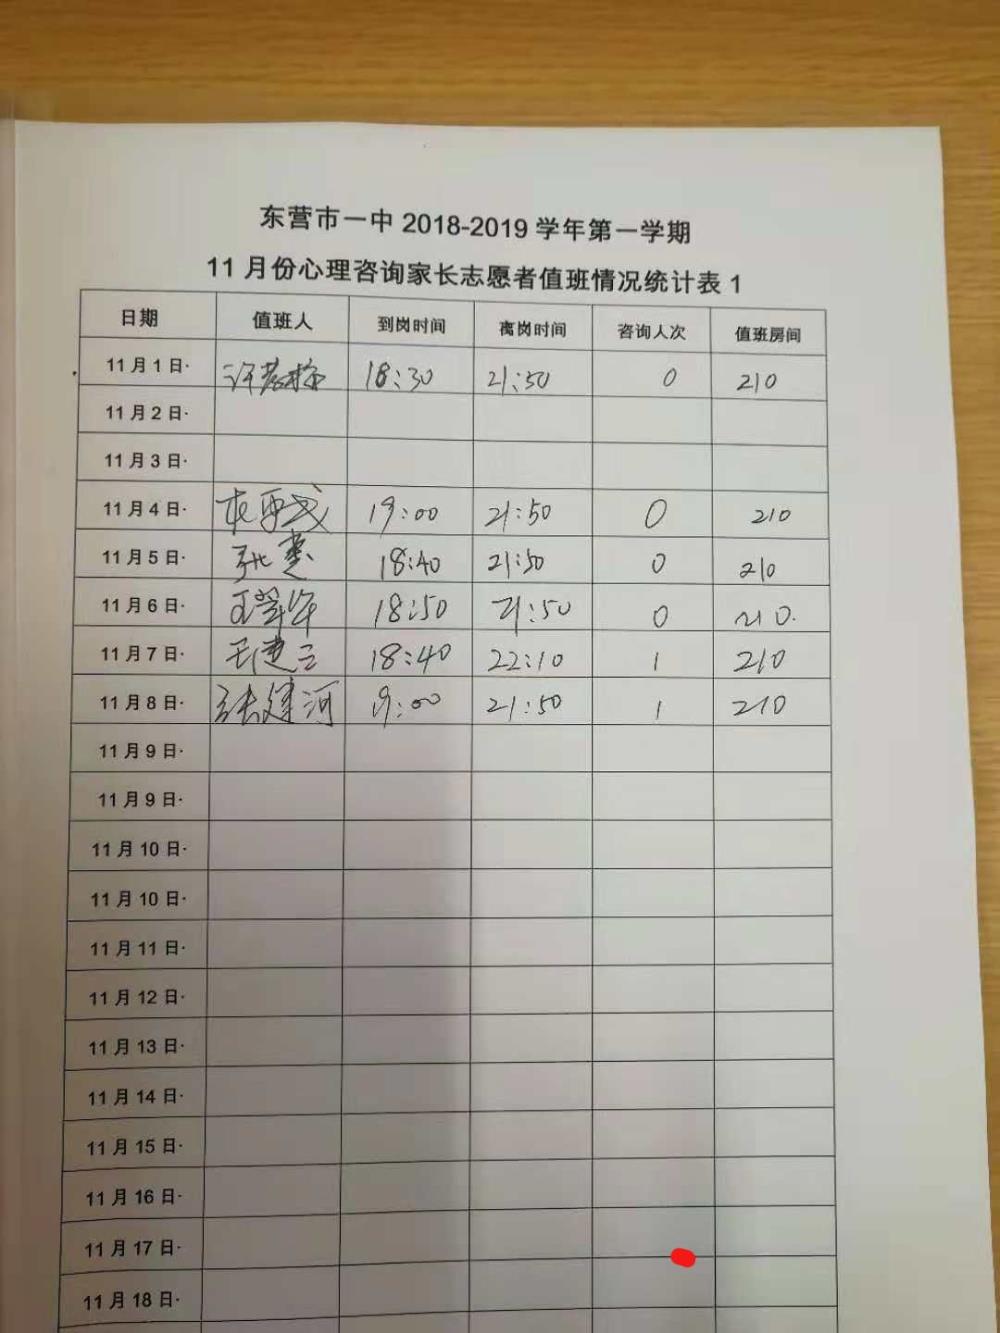 东营市一中 2018-2019 学年第一学期
11 月份心理咨询家长志愿者值班情况统计表 1
日期 值班人 到岗时间 离岗时间 咨询人次 值班房间
11 月 1 日· 18:30 21:50 0 210
11 月 2 日·
11 月 3 日·
11 月 4 日· 19:00 21:50 0 210
11 月 5 日· 18:40 21:50 0 210
11 月 6 日· 18:50 21:50 0 210.
11 月 7 日· 王建三 18:40 22:10 1 210
11 月 8 日· 张建河 19:00 21:50 1 210
11 月 9 日·
11 月 9 日·
11 月 10 日·
11 月 10 日·
11 月 11 日·
11 月 12 日·
11 月 13 日·
11 月 14 日·
11 月 15 日·
11 月 16 日·
11 月 17 日·
11 月 18 日·